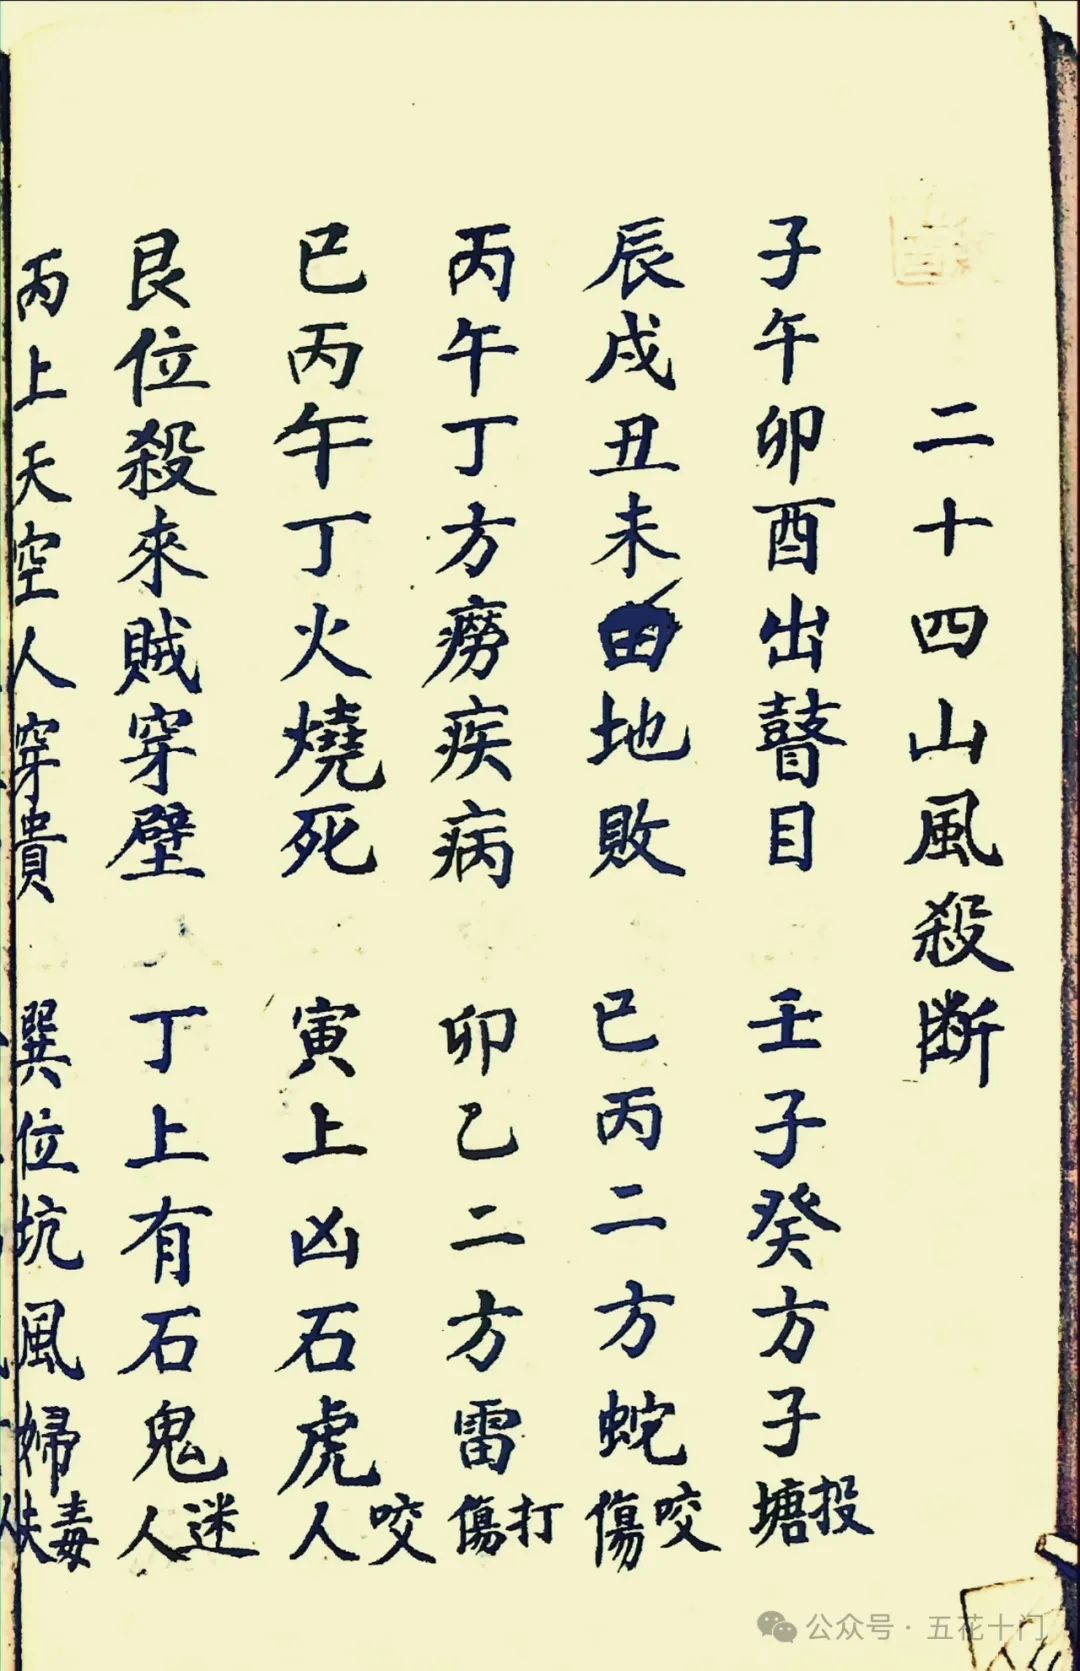 二十四山風殺斷
子午卯酉出瞽目　壬子癸方子投塘
辰戌丑未田地敗　巳丙二方蛇咬傷
丙午丁方癆疾病　卯乙二方雷打傷
巳丙午丁火燒死　寅上凶石虎咬人
艮位殺來賊穿壁　丁上有石鬼迷人
丙上天空人穿貴　巽位坑風婦毒夫
公众号 · 五花十门